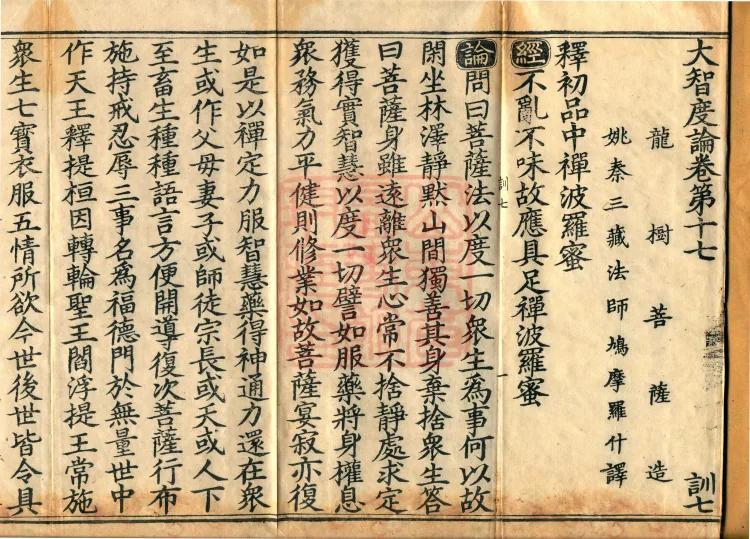 大智度論卷第十七 訓七
龍樹菩薩造
姚秦三藏法師鳩摩羅什譯
釋初品中禪波羅蜜
經不亂不味故應具足禪波羅蜜
訓七 一
論問曰菩薩法以度一切衆生爲事何以故
閑坐林澤靜默山間獨善其身棄捨衆生答
曰菩薩身雖遠離衆生心常不捨靜處求定
獲得實智慧以度一切譬如服藥將身權息
衆務氣力平健則修業如故菩薩宴寂亦復
如是以禪定力服智慧藥得神通力還在衆
生或作父母妻子或師徒宗長或天或人下
至畜生種種語言方便開導復次菩薩行布
施持戒忍辱三事名爲福德門於無量世中
作天王釋提桓因轉輪聖王閻浮提王常施
衆生七寶衣服五情所欲今世後世皆令具